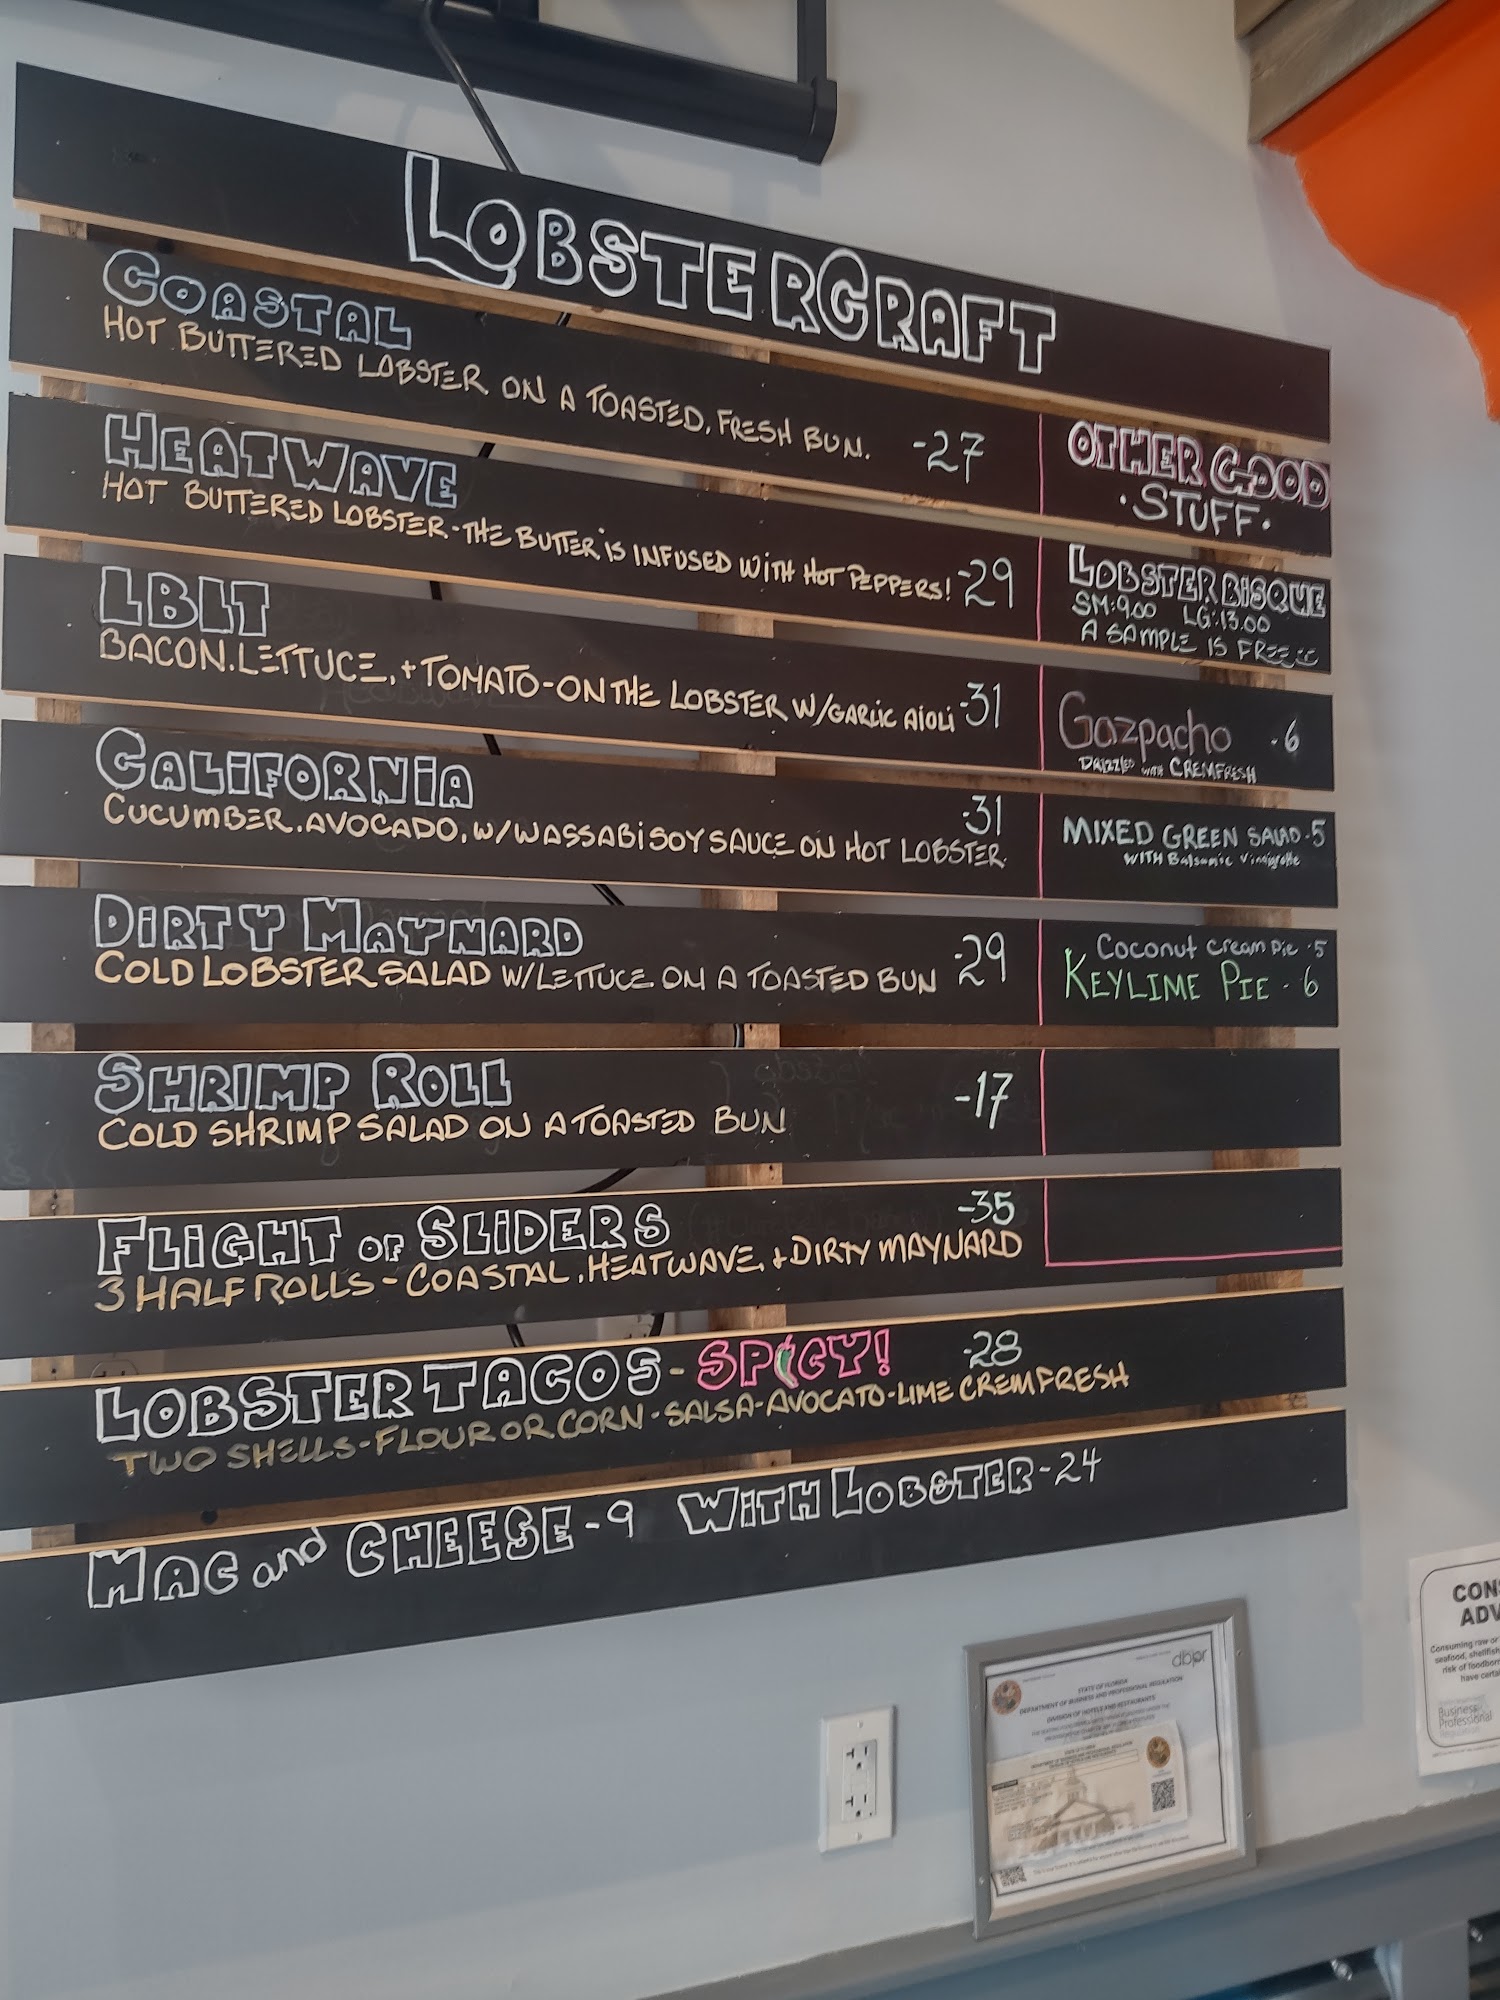 LOBSTERCRAFT
COASTAL
HOT BUTTERED LOBSTER ON A TOASTED, FRESH BUN. -27
HEATWAVE
HOT BUTTERED LOBSTER - THE BUTTER IS INFUSED WITH HOT PEPPERS! -29
LBLT
BACON, LETTUCE, + TOMATO - ON THE LOBSTER W/GARLIC AIOLI -31
CALIFORNIA -31
CUCUMBER, AVOCADO, W/WASSABI SOY SAUCE ON HOT LOBSTER
DIRTY MAYNARD
COLD LOBSTER SALAD W/LETTUCE ON A TOASTED BUN -29
SHRIMP ROLL -17
COLD SHRIMP SALAD ON A TOASTED BUN
FLIGHT OF SLIDERS -35
3 HALF ROLLS - COASTAL, HEATWAVE, + DIRTY MAYNARD
LOBSTER TACOS - SPICY! -28
TWO SHELLS - FLOUR OR CORN - SALSA - AVOCATO - LIME CREMFRESH
MAC and CHEESE - 9 WITH LOBSTER - 24
OTHER GOOD
• STUFF •
LOBSTER BISQUE
SM: 9.00 LG: 13.00
A SAMPLE IS FREE
Gazpacho - 6
DRIZZLED WITH CREMFRESH
MIXED GREEN SALAD - 5
WITH Balsamic Vinaigrette
Coconut Cream Pie - 5
KEYLIME PIE - 6
dbpr
STATE OF FLORIDA
DEPARTMENT OF BUSINESS AND PROFESSIONAL REGULATION
DIVISION OF HOTELS AND RESTAURANTS
CONS
ADV
Consuming raw or
seafood, shellfish
risk of foodborn
have certa
Business
Professional
Regulation